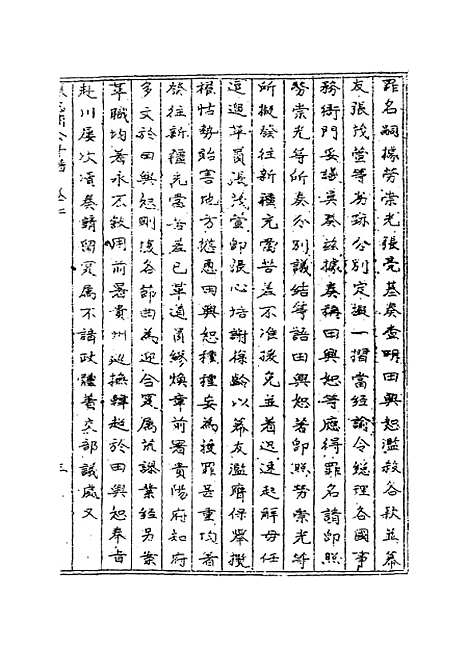 罪名嗣據勞崇光張亮基奏查明田興恕濫殺各款並幕
友張茂萱等劣跡分別定擬一摺當經諭令總理各國事
務衙門妥議具奏茲據奏稱田興恕等應得罪名請即照
勞崇光等所奏分別議結等語田興恕著即照勞崇光等
所擬發往新疆充當苦差不准援免並着迅速起解毋任
逗遛革員張茂萱即張心培謝葆齡以幕友濫膺保舉攬
權怙勢貽害地方慫恿田興恕種種妄為獲罪甚重均著
發往新疆充當苦差已革道員繆煥章前署貴陽府知府
多文於田興恕剛愎各節曲為迎合實屬荒謬業經另案
革職均著永不敘用前署貴州巡撫韓超於田興恕奉旨
赴川屢次瀆奏請留實屬不諳政體著交部議處又
三